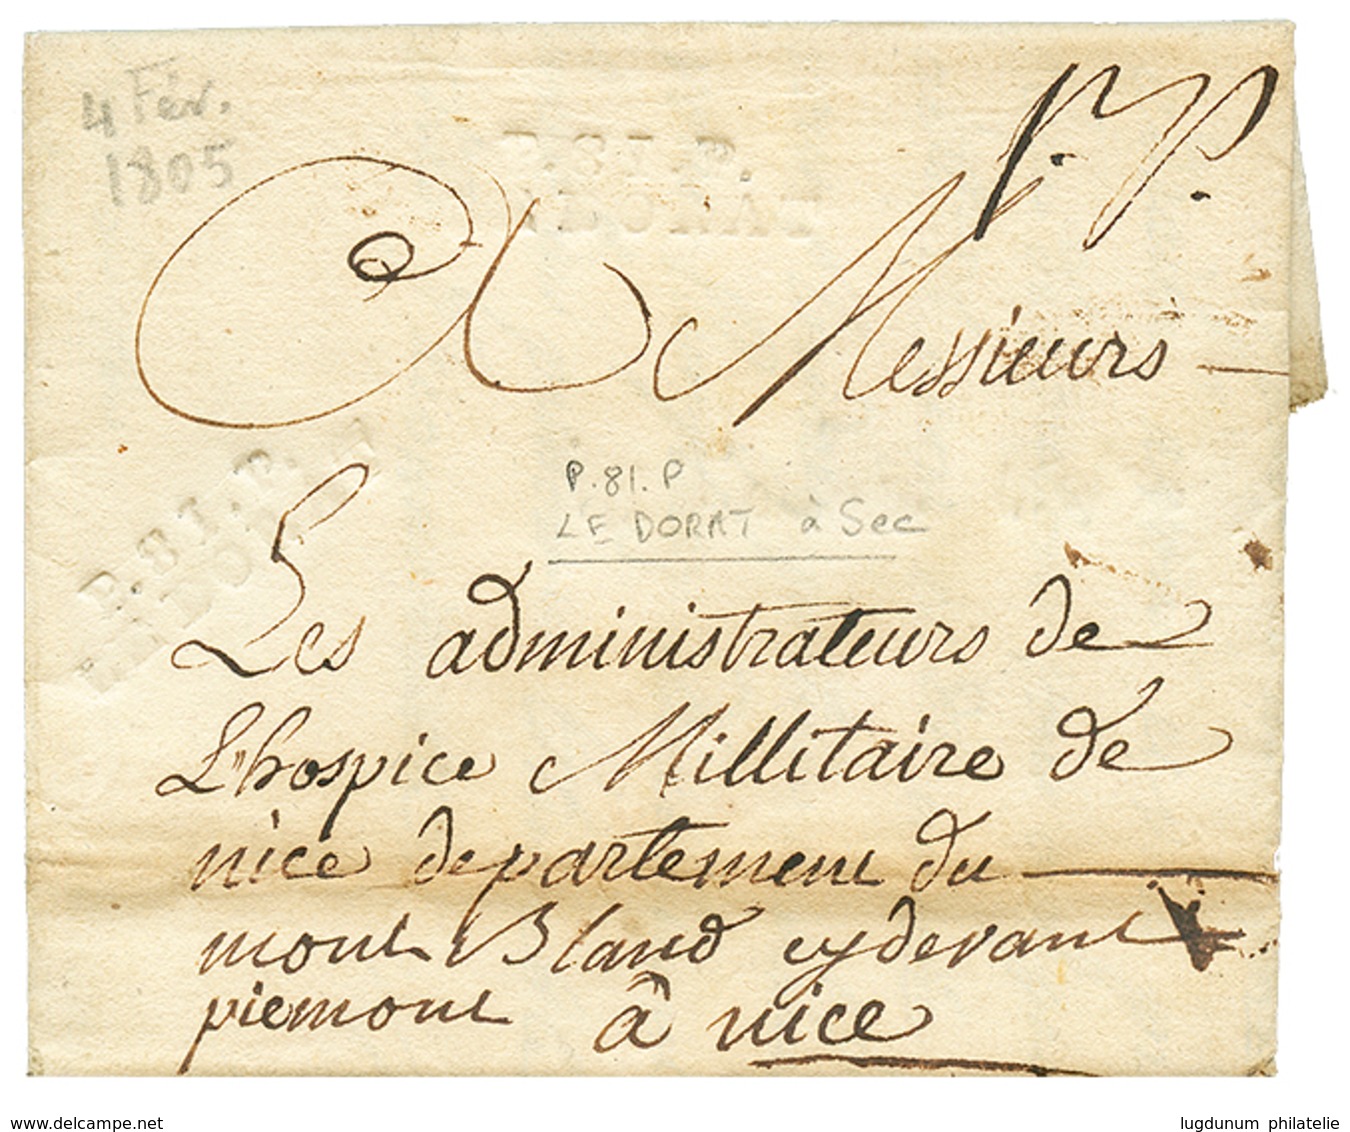 4 Fév.
1805
P. P.
A Messieurs
P.81.P
LE DORAT à Sec
P.81.P.
Les administrateurs de
L'hospice Millitaire de
nice departement du
mont Bland cy devant
piemont à nice
www.delcampe.net
lugdunum philatelie